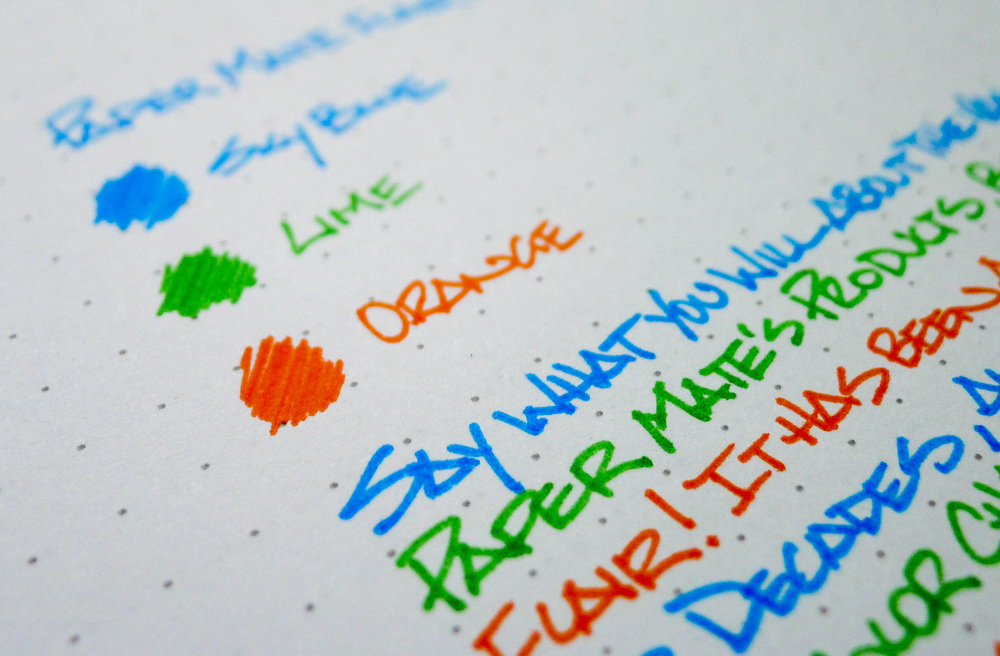 PAPER MATE FLAIR
SKY BLUE
LIME
ORANGE
SAY WHAT YOU WILL ABOUT THE
PAPER MATE'S PRODUCTS
FLAIR! IT HAS BEEN
DECADES
COLOR